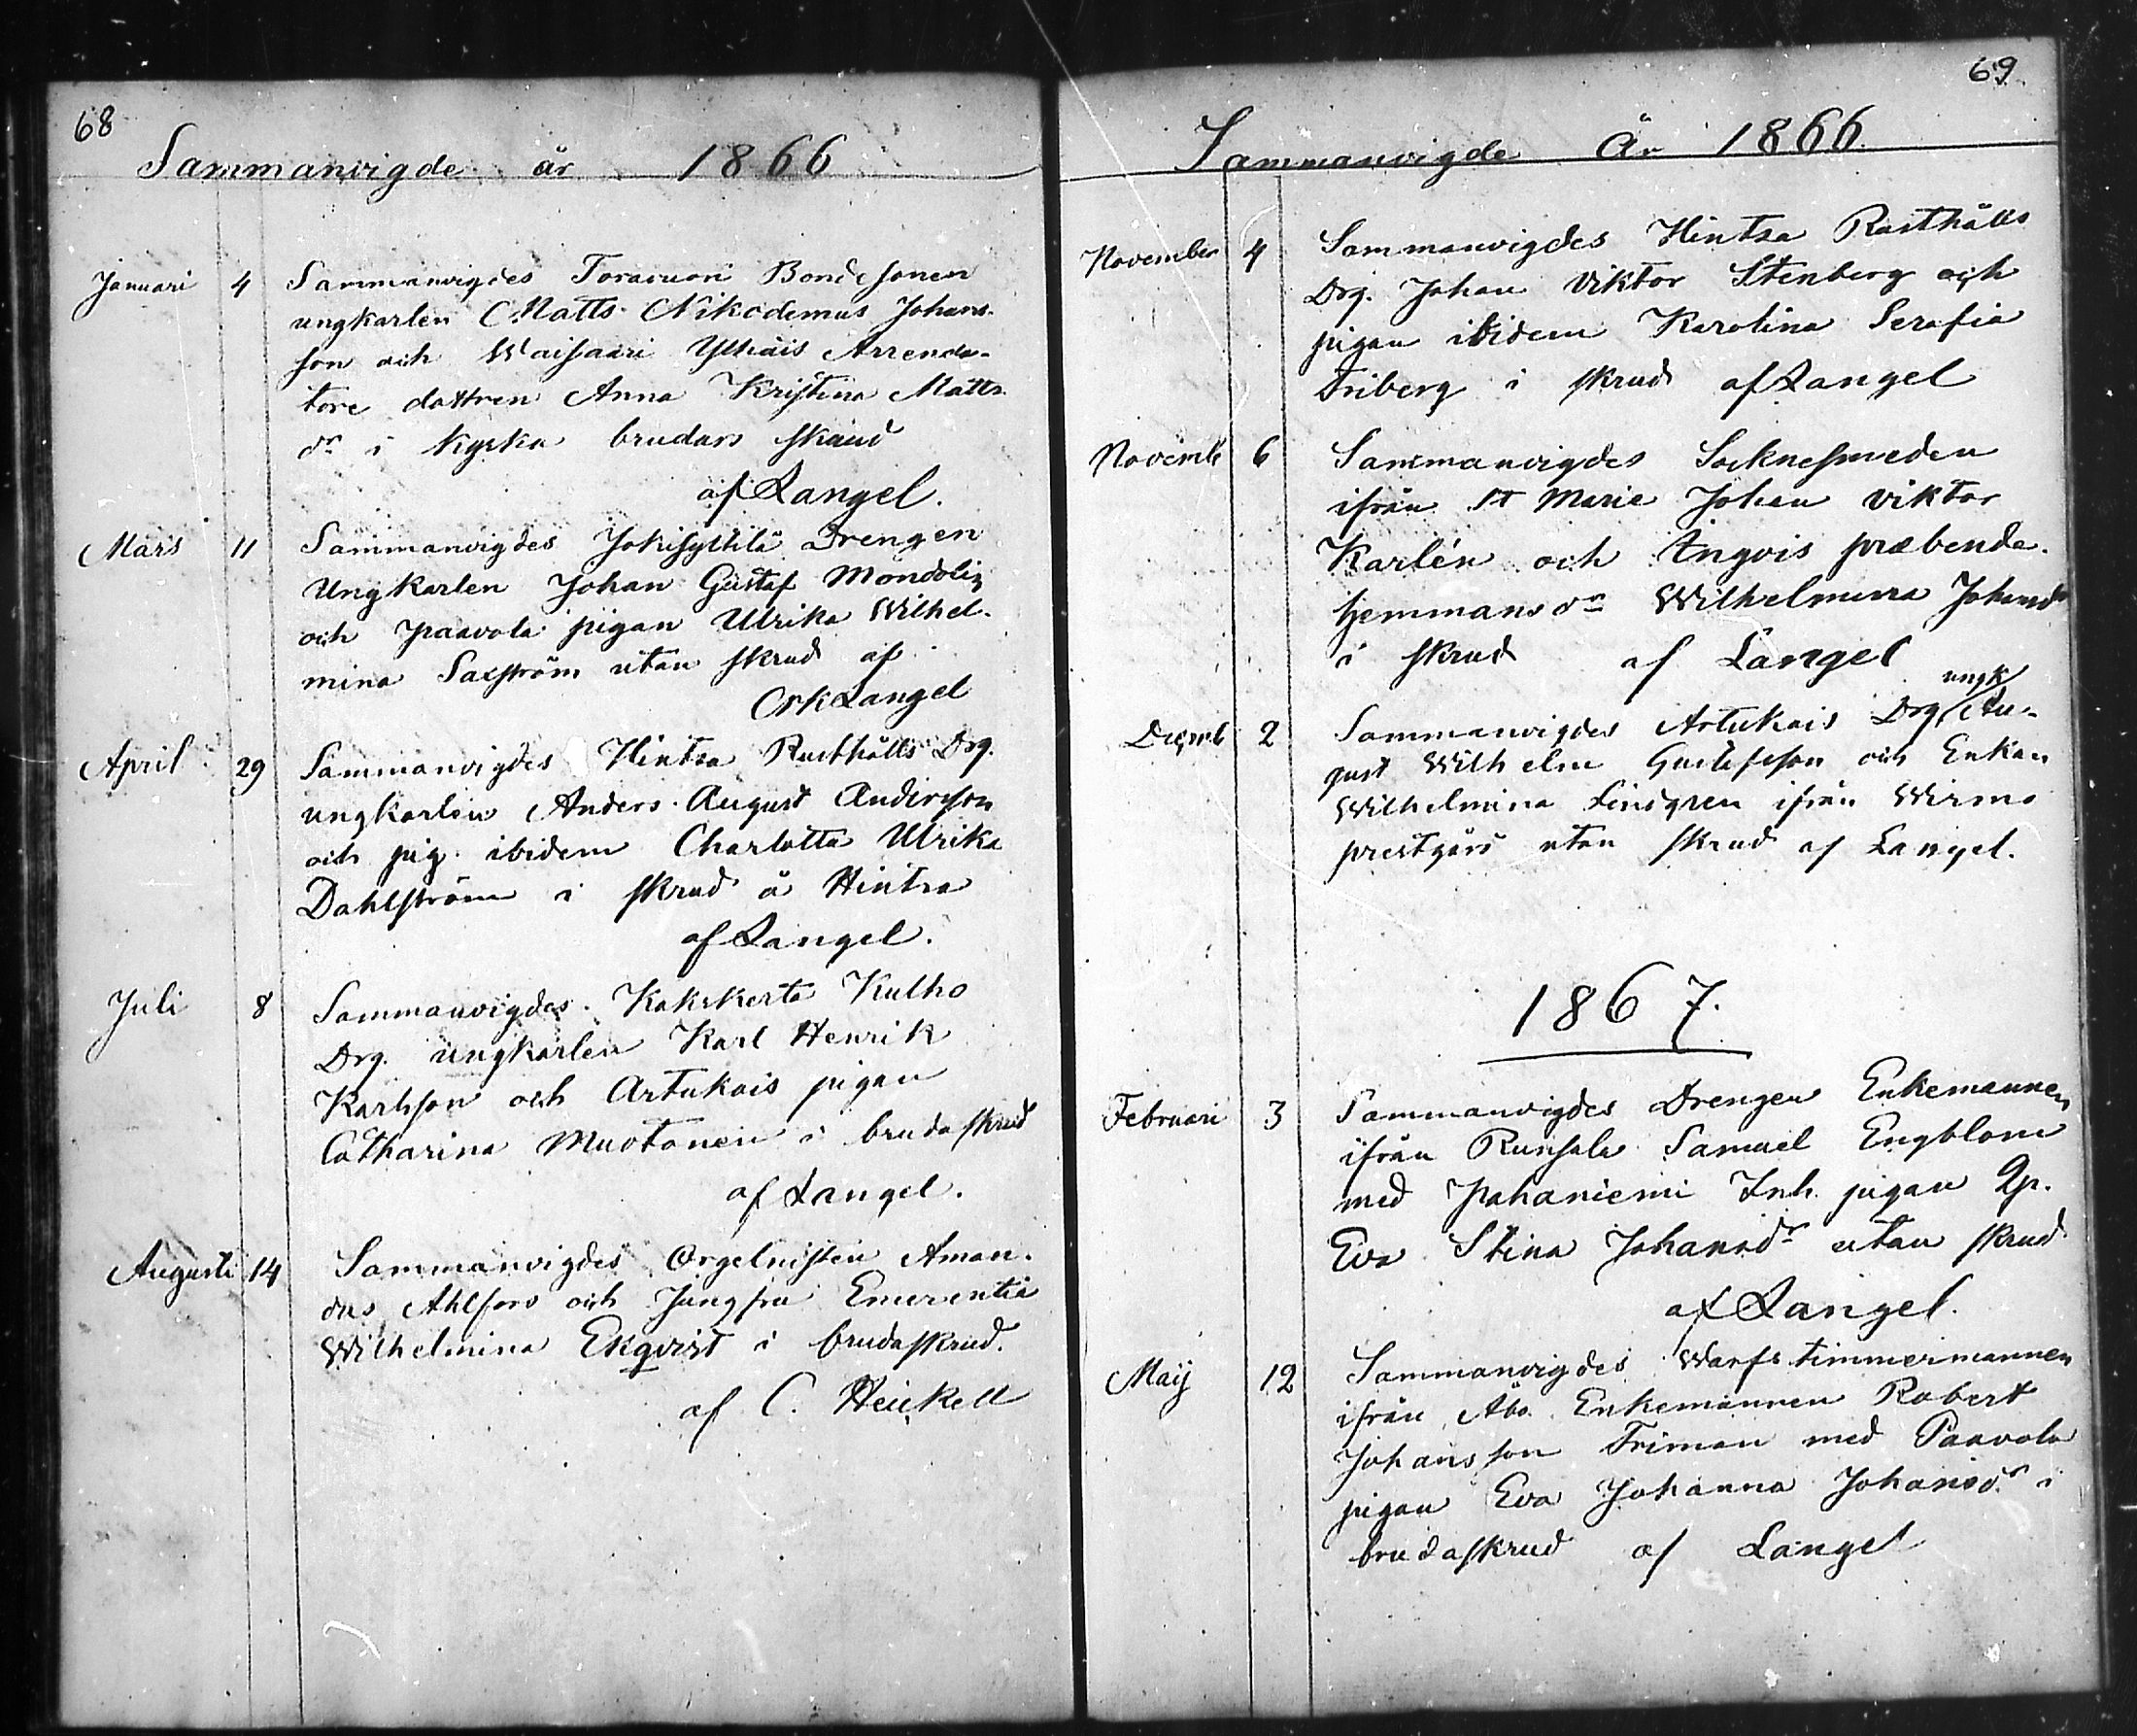 68
Sammanvigde år 1866
Januari 4 Sammanvigdes Toravuori Bondesonen
ungkarlen Matts Nikodemus Johans-
son och Waisaari Ylhäis Arrenda-
tore dottren Anna Kristina Matts
dr i Kyrka brudars skrud
af Langel.
Mars 11 Sammanvigdes Jokisyltilä Drengen
Ungkarlen Johan Gustaf Mondolin
och Paavola pigan Ulrika Wilhel-
mina Saxström utan skrud af
Ork Langel
April 29 Sammanvigdes Hintsa Rusthålls Drg.
ungkarlen Anders August Andersson
och pig. ibidem Charlotta Ulrika
Dahlström i skrud å Hintsa
af Langel.
Juli 8 Sammanvigdes Kakskerta Kulho
Drg. ungkarlen Karl Henrik
Karlsson och Artukais pigan
Catharina Muotonen i brudaskrud
af Langel.
Augusti 14 Sammanvigdes Orgelnisten Aman-
dus Ahlfors och Jungfru Emerentia
Wilhelmina Ekqvist i brudaskrud.
af C. Heickell
69
Sammanvigde År 1866.
November 4 Sammanvigdes Hintsa Rusthålls
Drg. Johan Viktor Stenberg och
pigan ibidem Karolina Serafia
Friberg i skrud af Langel
Novemb 6 Sammanvigdes Socknesmeden
ifrån St Marie Johan Viktor
Karlén och Ängvis præbende-
hemmans dr Wilhelmina Johansdr
i skrud af Langel
Decemb 2 Sammanvigdes Artukais Drg. ungk Au-
gust Wilhelm Gustafsson och Enkan
Wilhelmina Lindgren ifrån Wirmo
prestgård utan skrud af Langel.
1867.
Februari 3 Sammanvigdes Drengen Enkemannen
ifrån Runsala Samuel Engblom
med Pahaniemi Inh. pigan Qp.
Eva Stina Johansdr utan skrud
af Langel.
Maij 12 Sammanvigdes Warfs timmermannen
ifrån Åbo Enkemannen Robert
Johansson Friman med Paavola
pigan Eva Johanna Johansdr i
brudaskrud af Langel